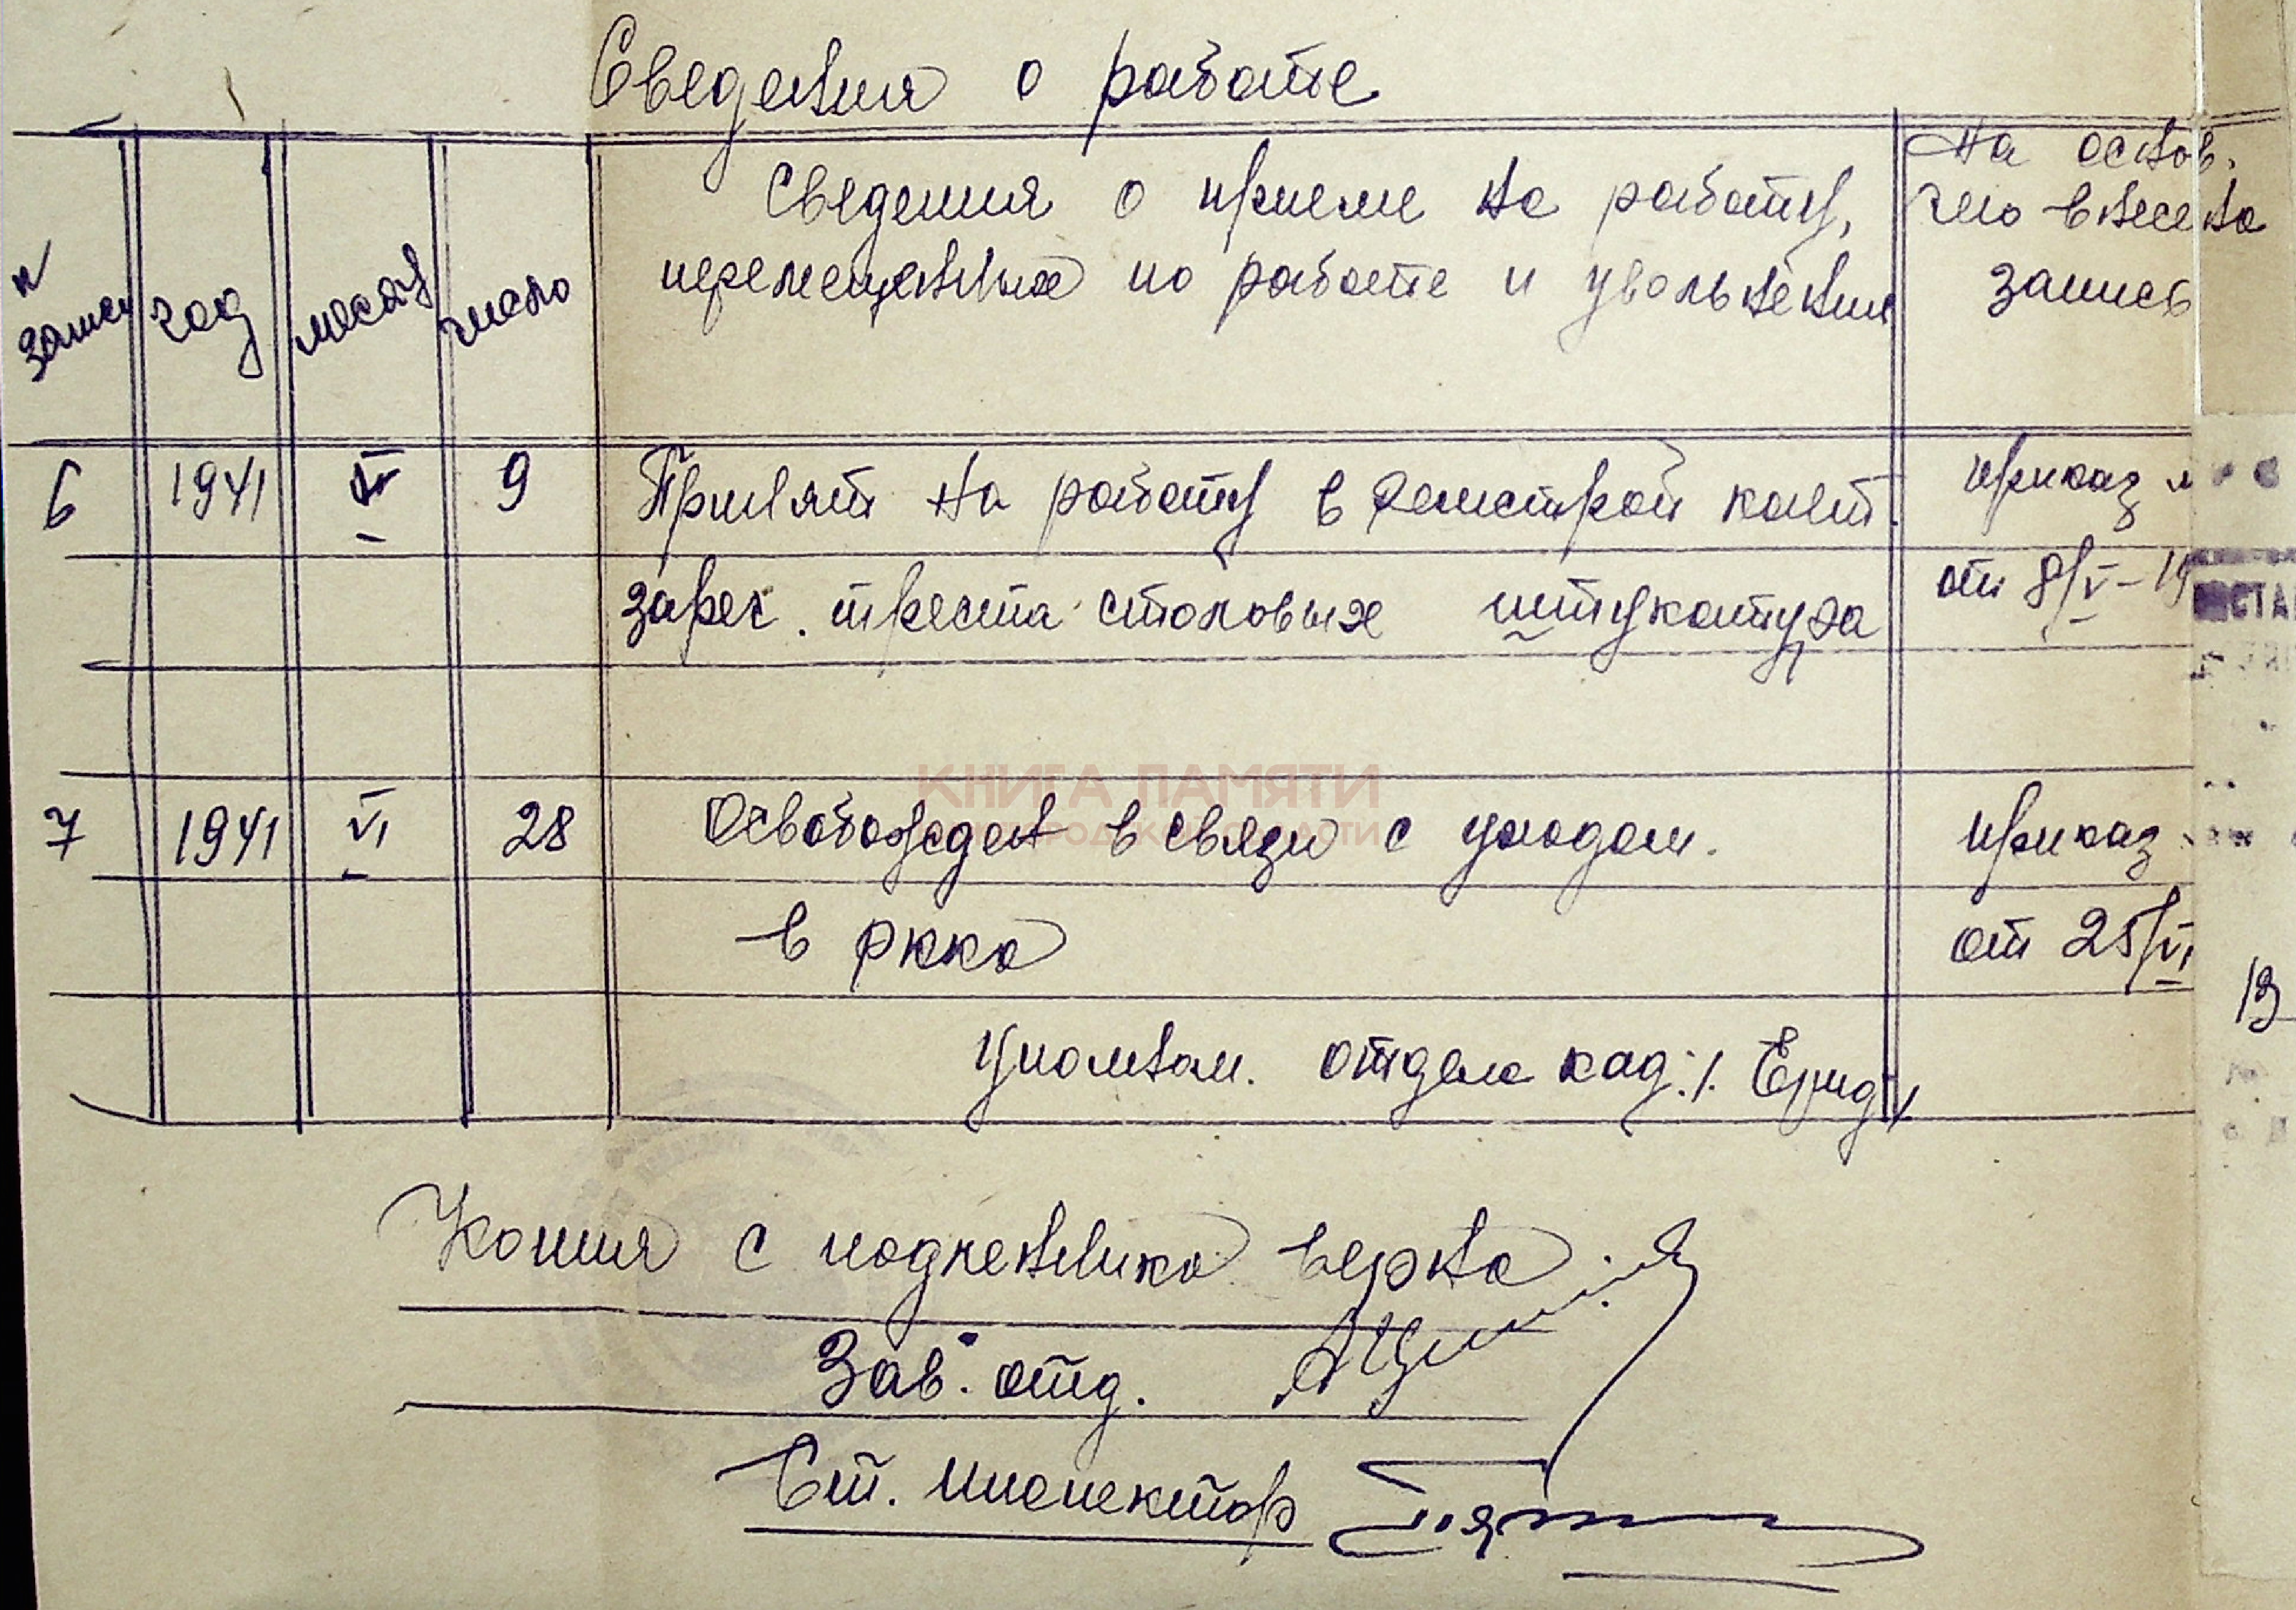 Сведения о работе
N записи
год
месяц
число
Сведения о приеме на работу,
перемещениях по работе и увольнения
На основ.
чего внесена
запись
6 1941 V 9 Принят на работу в Ремстрой конт. приказ
зареч. треста столовых штукатура от 8/V-19
СТА
КНИГА ПАМЯТИ
7 1941 VI 28 Освобожден в связи с уходом. приказ
в РККА от 25/VI
Уполном. отдела кад.
Копия с подлинника верна
Зав. отд.
Ст. инспектор